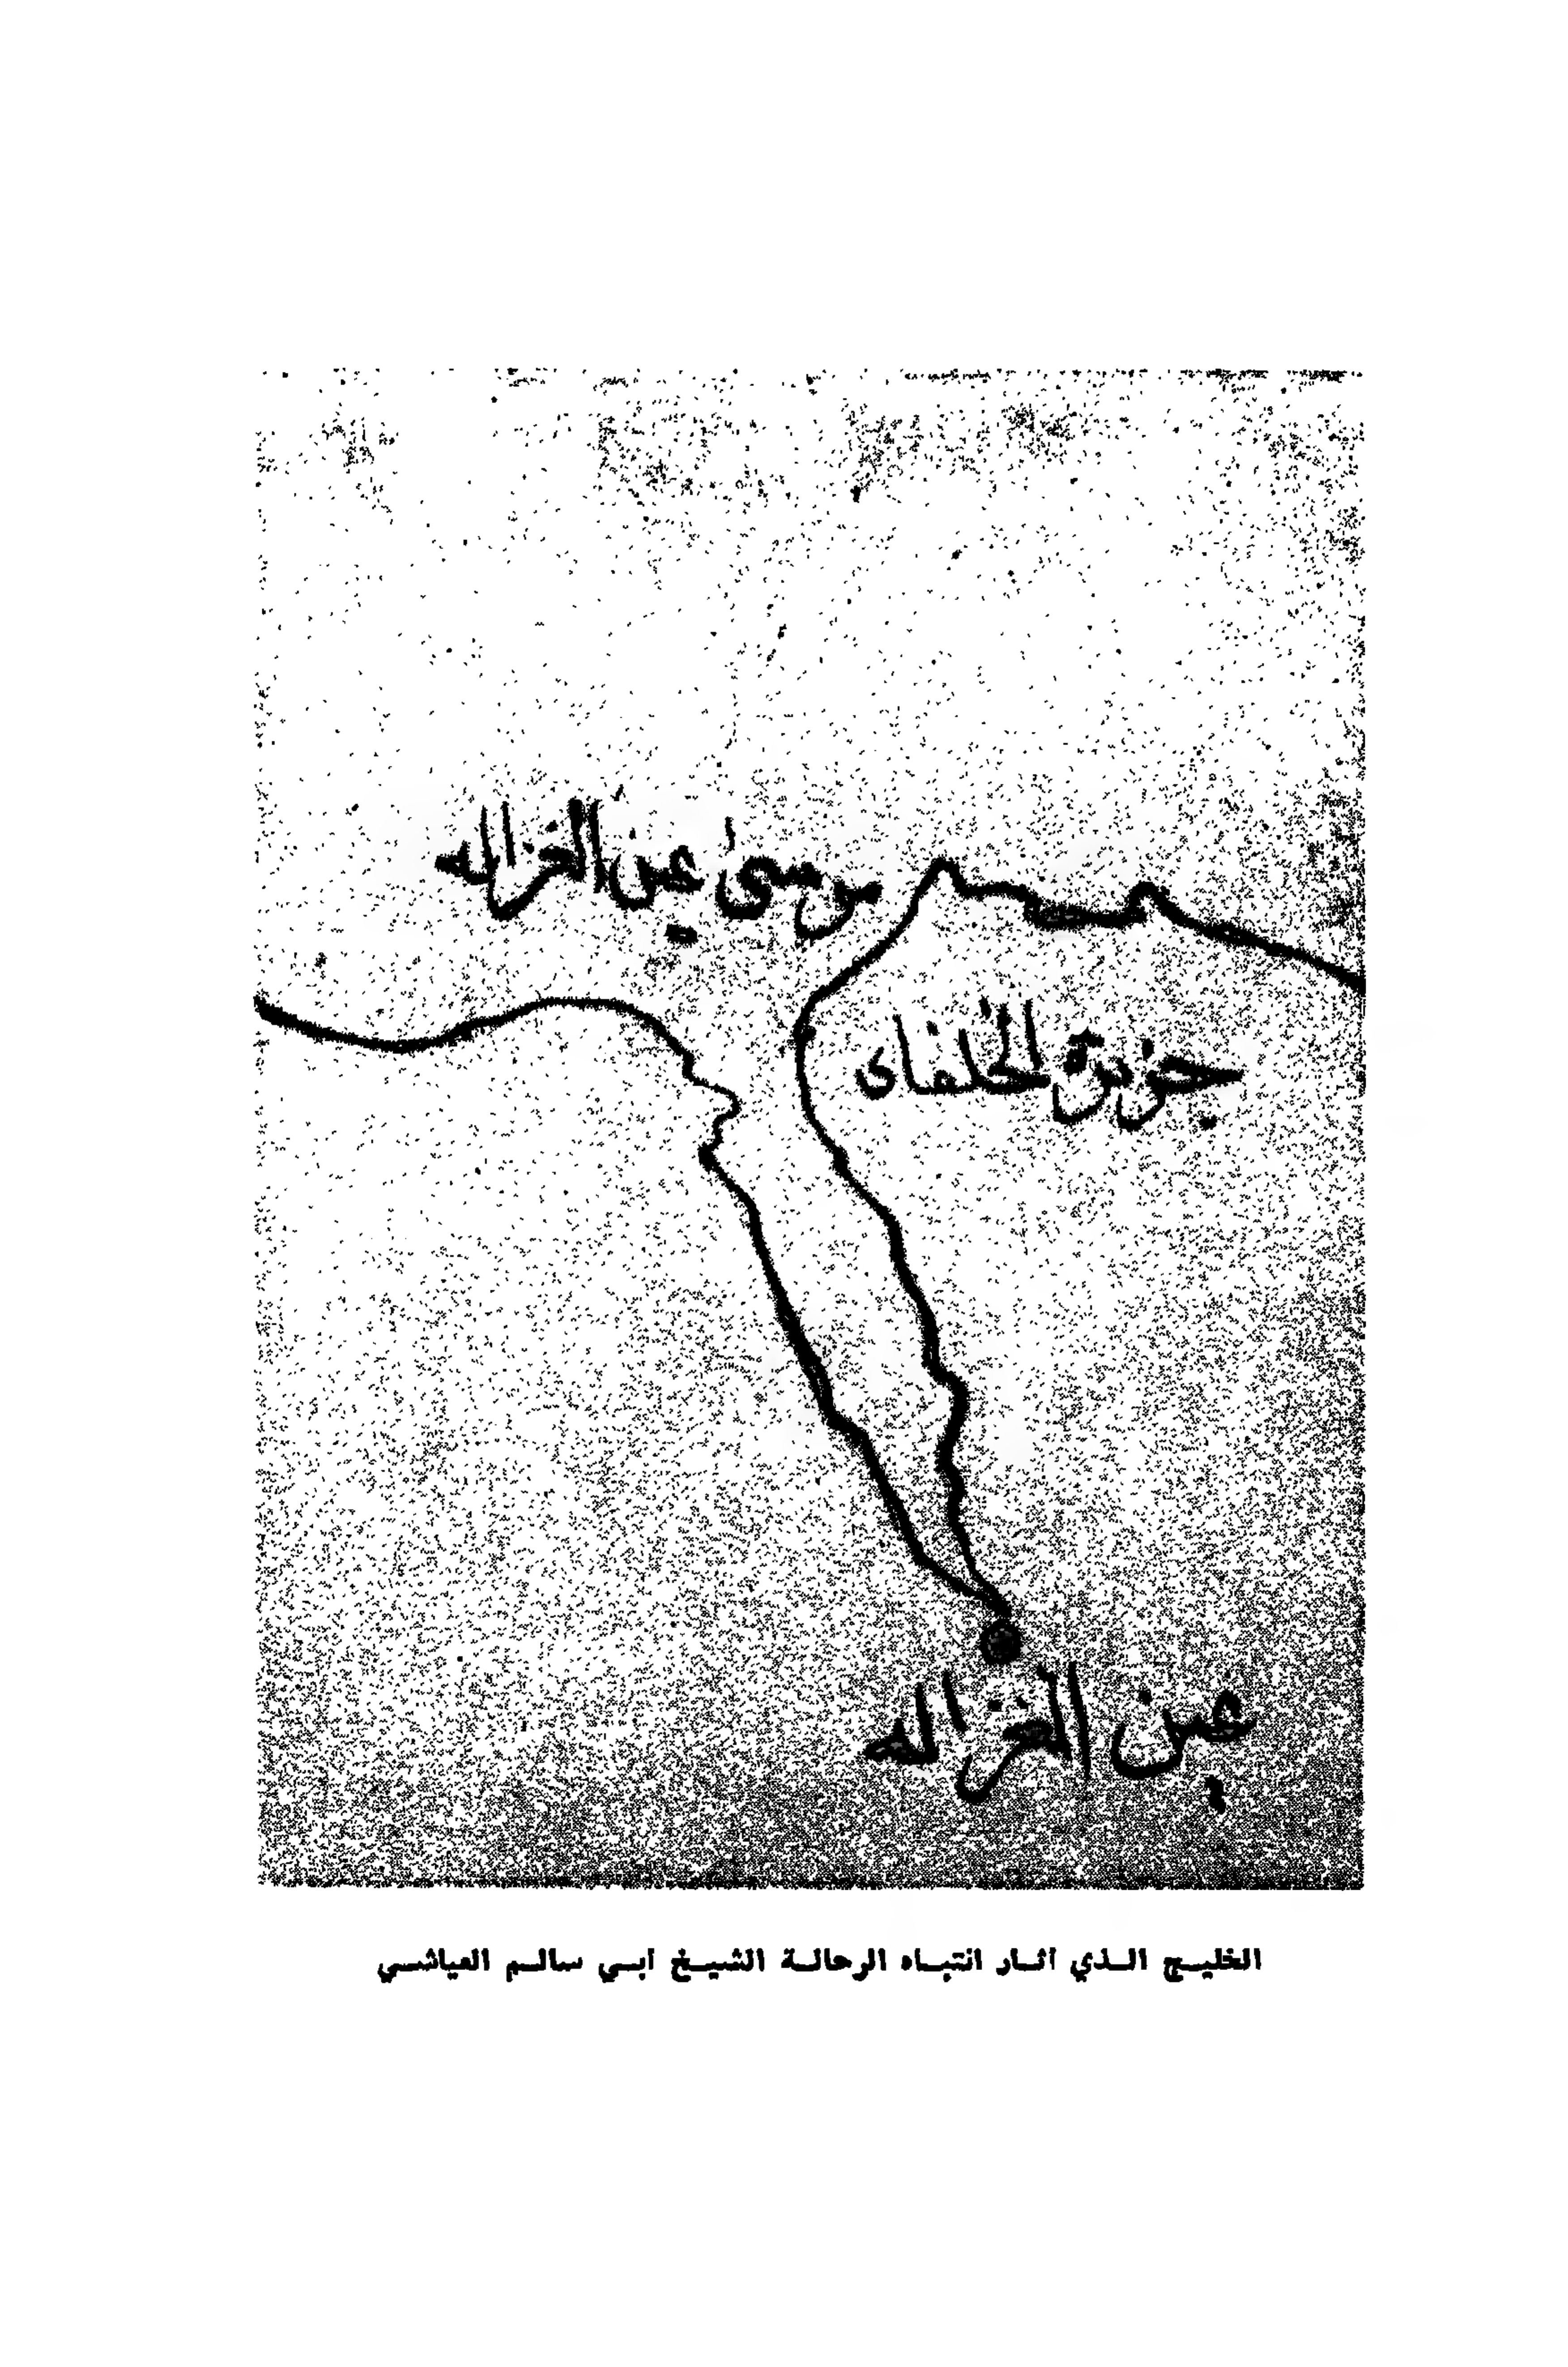 مرسىٰ عين الغزاله
جزيرة الخلفاى
عين الغزاله
الخليج الذي آثار انتباه الرحالة الشيخ أبي سالم العياشي